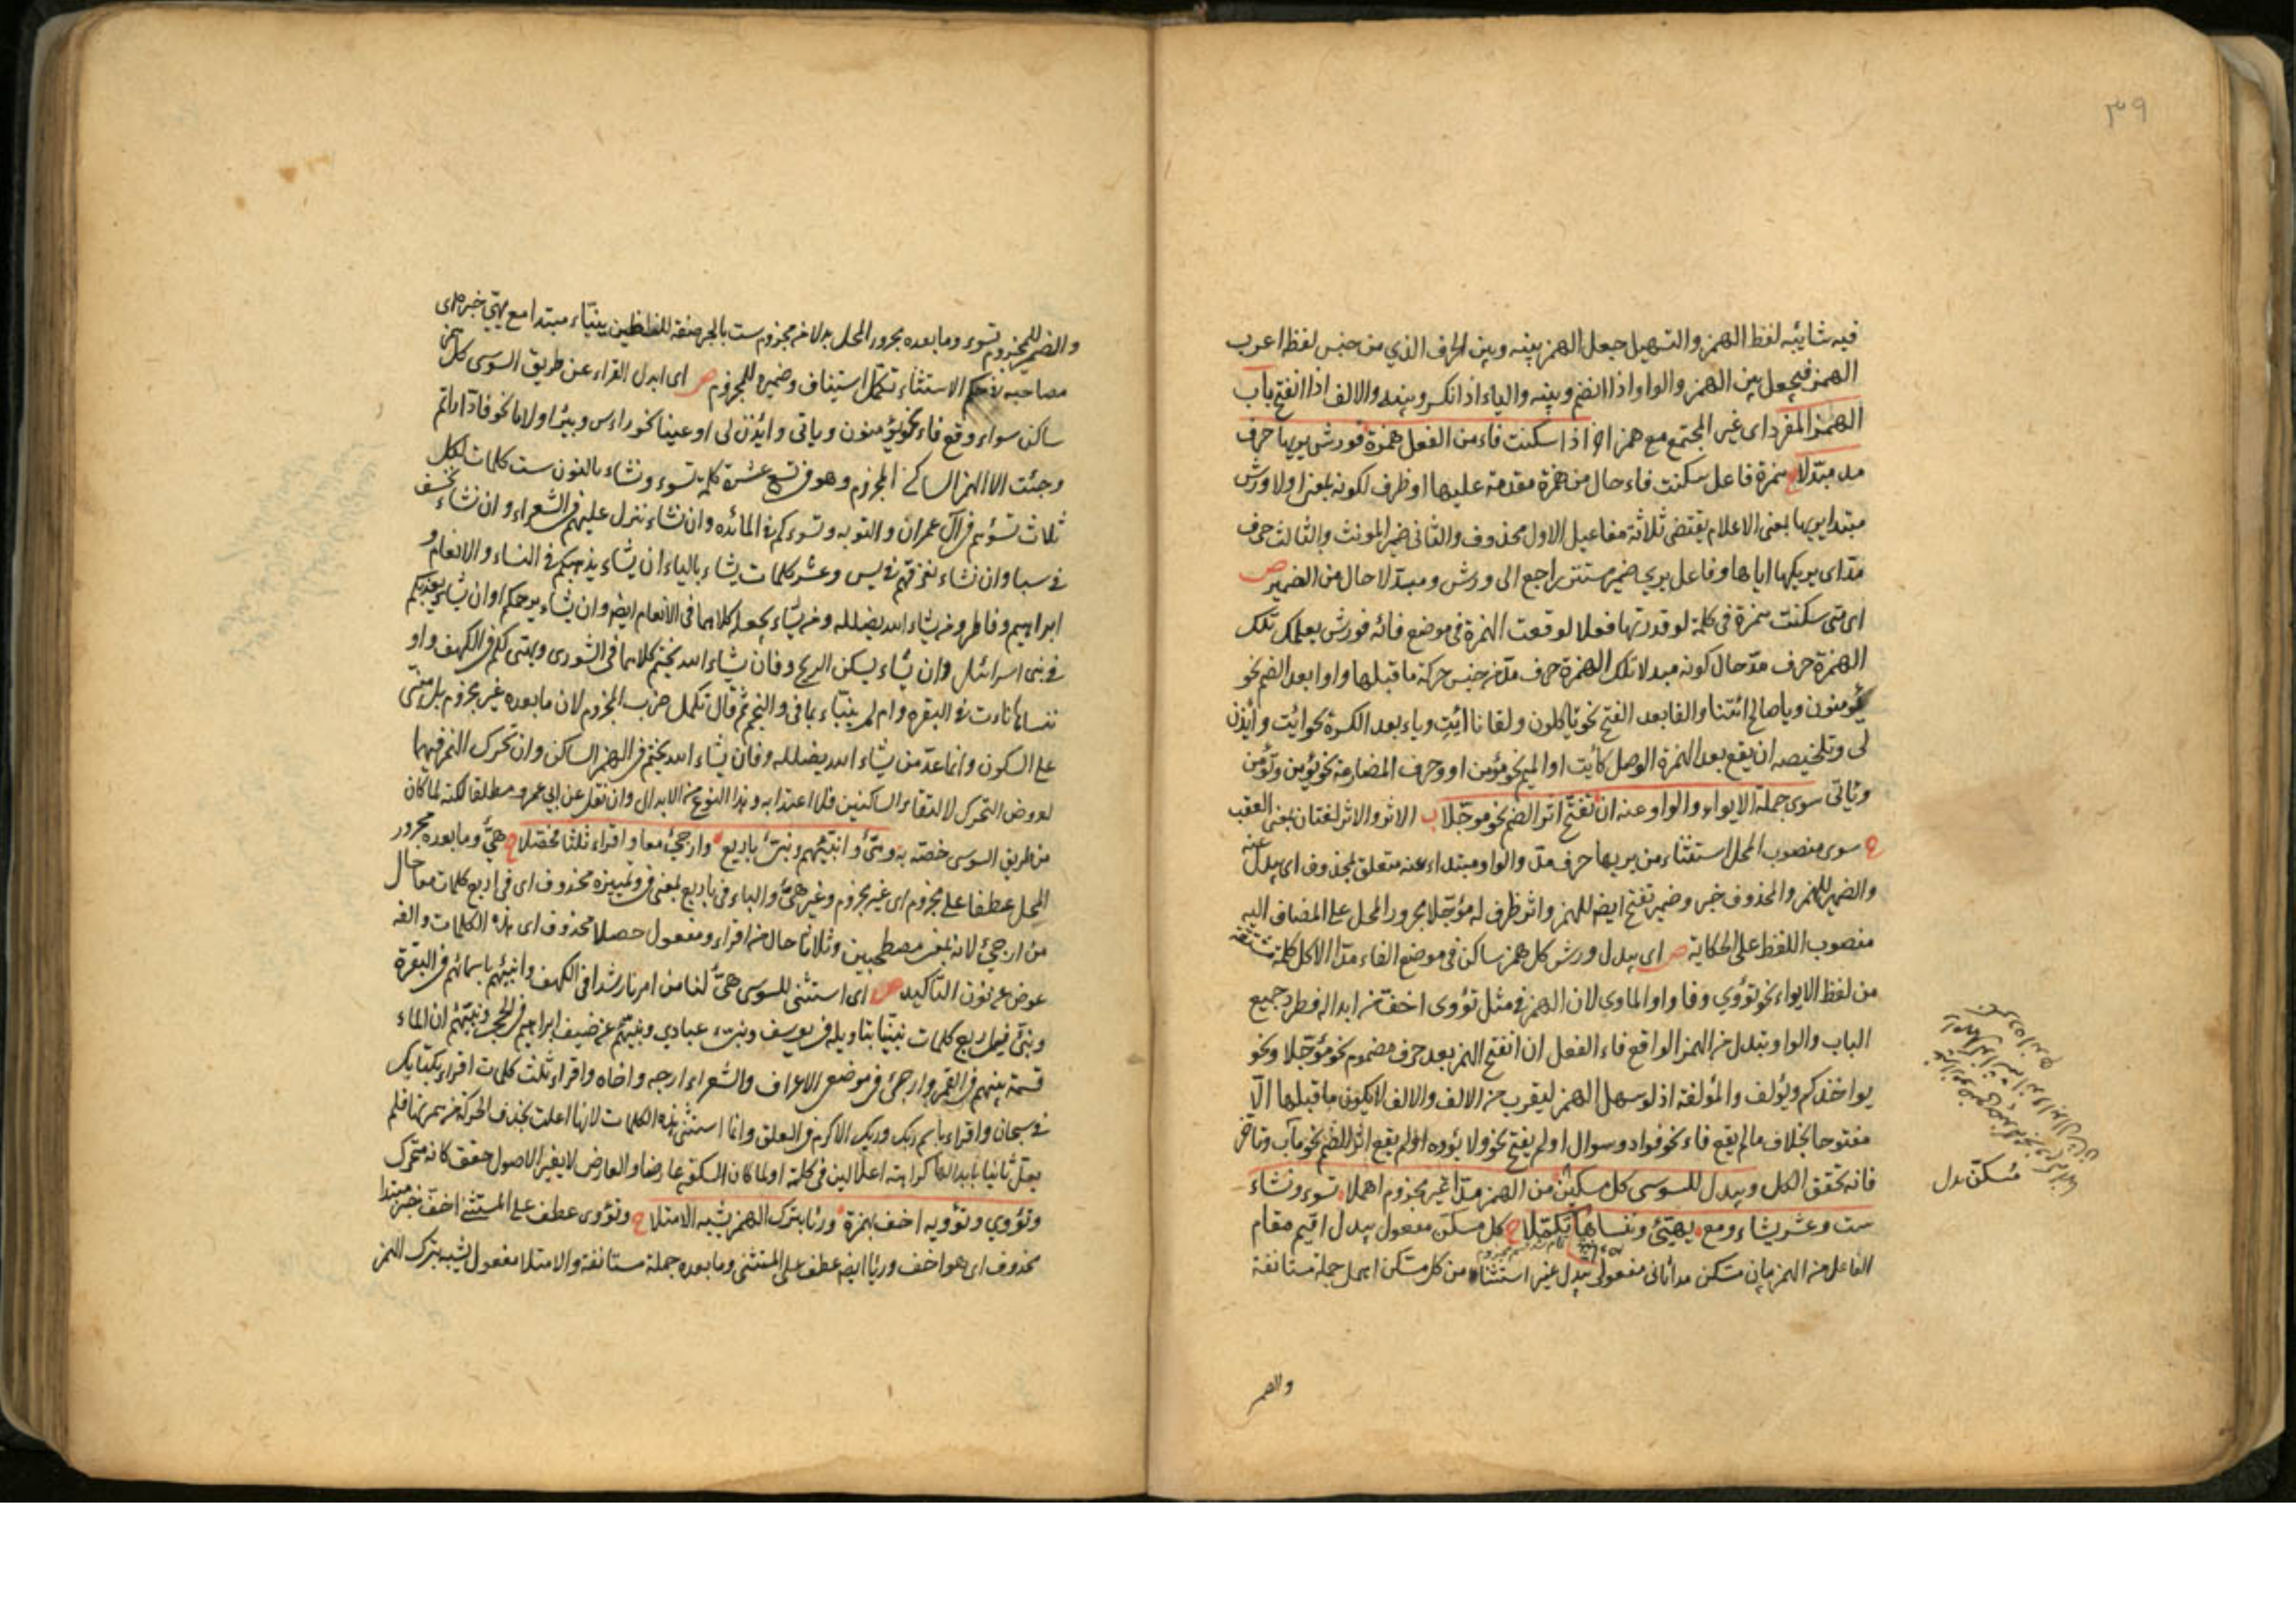 ٣٩
فيه شائبه لفظ الهمز والتسهيل جعل الهمز بينه وبين الحرف الذي من جنس لفظ اعرب
الهمز فيجعل بين الهمز والواو اذا انضم وبينه والياء اذا انكسر وبينه والالف اذا انفتح باب
الهمز المفرد اى غير المجتمع مع همز اخر اذا سكنت فاء من الفعل همزة فورش يريها حرف
مد مبدلا ح همزة فاعل سكنت فاء حال من همزة مقدمة عليها او ظرف لكونه بمعنى اولا ورش
مبتدا يريها بمعنى الاعلام يقتضى ثلاثة مفاعيل الاول محذوف والثانى ضمير المونث والثالث حرف
مد اى يريكها اياها وفاعل يرى ضمير مستتر راجع الى ورش ومبدلا حال من الضمير ص
اى متى سكنت همزة فى كلمة لو قدرتها فعلا لوقعت الهمزة فى موضع فائه فورش يعلمك تلك
الهمزة حرف مد حال كونه مبدلا تلك الهمزة حرف مد من جنس حركة ما قبلها واوا بعد الضم نحو
يؤمنون ويا صالح ائتنا والفا بعد الفتح نحو تاكلون ولقانا ائت وياء بعد الكسرة نحو ائت وائذن
لى وتلخيصه ان يقع بعد الهمزة الوصل كأيت او الميم نحو مؤمن او حرف المضارعة نحو يؤمن وتؤمن
وياتى سوى جملة الايواء والواو عنه ان تفتح اثر الضم نحو موجلا ب الاثر والاثر لغتان بمعنى العقب
ح سوى منصوب المحل استثناء من يريها حرف مد والواو مبتداء عنه متعلق بمحذوف اى يبدل عنه
والضمير للهمز والمحذوف خبر وضمير تفتح ايضا للهمز واثر ظرف له مؤجلا مجرور المحل على المضاف اليه
منصوب اللفظ على الحكاية ص اى يبدل ورش كل همز ساكن فى موضع الفاء مدا الا كل كلمة مشتقة
من لفظ الايواء نحو تؤوي وفاووا والماوى لان الهمز فى مثل تؤوى اخف من ابداله فطرد جميع
الباب والواو يبدل من الهمز الواقع فاء الفعل ان انفتح الهمز بعد حرف مضموم نحو مؤجلا ونحو
يواخذكم ويؤلف والمؤلفة اذ لو سهل الهمز ليقرب من الالف والالف لا يكون ما قبلها الا
مفتوحا بخلاف ما لم يقع فاء نحو فواد وسوال او لم يفتح نحو ولا يؤده او لم يقع اثر الضم نحو مآب وتاخر
فانه تحقق الكل ويبدل للسوسى كل مسكن من الهمز مدا غير مجزوم اهملا تسوء ونشاء
ست وعشر يشاء ومع يهيئ وننساها تكملا ح كل مسكن مفعول يبدل اقيم مقام
الفاعل من الهمز بيان مسكن مدا ثانى مفعولى يبدل غير استثناء من كل مسكن اهمل جملة مستانفة
مسكن بدل
والضمير
والضمير للمجزوم تسوء وما بعده مجرور المحل بدلا من مجزوم ست بالجر صفة للفظين ينبّاء مبتدا مع يهيئ خبره اى
مصاحبه لاحكم الاستثناء تكمل استيناف وضميره للمجزوم ص اى ابدل القراء عن طريق السوسى كل همز
ساكن سواء وقع فاء نحو يؤمنون وياتى وائذن لى او عينا نحو راس وبئر او لاما نحو فادّاراتم
وجئت الا الهمز الساكن المجزوم وهو فى تسع عشرة كلمة تسوء ونشاء بالنون ست كلمات لكل
ثلاث تسؤهم فى آل عمران والتوبه وتسوءكم فى المائده وان نشاء ننزل عليهم فى الشعراء وان نشاء نخسف
فى سبا وان نشاء نغرقهم فى يس وعشر كلمات يشاء بالياء ان يشاء يذهبكم فى النساء والانعام و
ابراهيم وفاطر ومن يشاء الله يضلله ومن يشاء يجعله كلاهما فى الانعام ايضا وان يشاء يرحمكم او ان يشاء يعذبكم
فى بنى اسرائيل وان يشاء يسكن الريح وفان يشاء الله يختم كلاهما فى الشورى ويهيى لكم فى الكهف واو
ننساها ناءت فى البقره وام لم ينبّاء بما فى والنجم ثم قال تكمل حزب المجزوم لان ما بعده غير مجزوم بل مبنى
على السكون وانما عد من يشاء الله يضلله وفان يشاء الله يختم فى الهمز الساكن وان تحرك الهمز فيهما
لعروض التحرك لالتقاء الساكنين فلا اعتداد به وهذا النوع من الابدال وان نقل عن ابى عمرو مطلقا لكنه لما كان
من طريق السوسى خصه به وهيئ وانبئهم ونبئ باربع وارجئ معا واقراء ثلثا محصلا ح هيئ وما بعده مجرور
المحل عطفا على مجزوم اى غير مجزوم وغير هيئ والباء فى باربع بمعنى فى وتمييزه محذوف اى فى اربع كلمات معا حال
من ارجئ لانه بمعنى مصطحبين وثلاثا حال من اقراء ومفعول حصلا محذوف اى هذه الكلمات والفه
عوض عن نون التاكيد ص اى استثنى للسوسى هيئ لنا من امرنا رشدا فى الكهف وانبئهم باسمائهم فى البقرة
ونبئ فى اربع كلمات نبئنا بتاويله فى يوسف ونبئ عبادي ونبئهم عن ضيف ابراهيم فى الحجر ونبئهم ان الماء
قسمة بينهم فى القمر وارجئ فى موضعى الاعراف والشعراء ارجه واخاه واقراء ثلث كلمات اقراء كتابك
فى سبحان واقراء باسم ربك وربك الاكرم فى العلق وانما استثنى هذه الكلمات لانها اعلت بحذف الحركة من همزتها فلم
يعل ثانيا بابدالها كراهة اعلالين فى كلمة او لما كان السكون عارضا والعارض لا يغير الاصول حقق كانه متحرك
وتؤوي وتؤويه اخف بهمزة ورئيا بترك الهمز يشبه الامتلا ح وتؤوى عطف على المستثنى اخف خبر مبتدا
محذوف اى هو اخف ورئيا ايضا عطف على المستثنى وما بعده جملة مستانفة والامتلا مفعول يشبه بترك الهمز